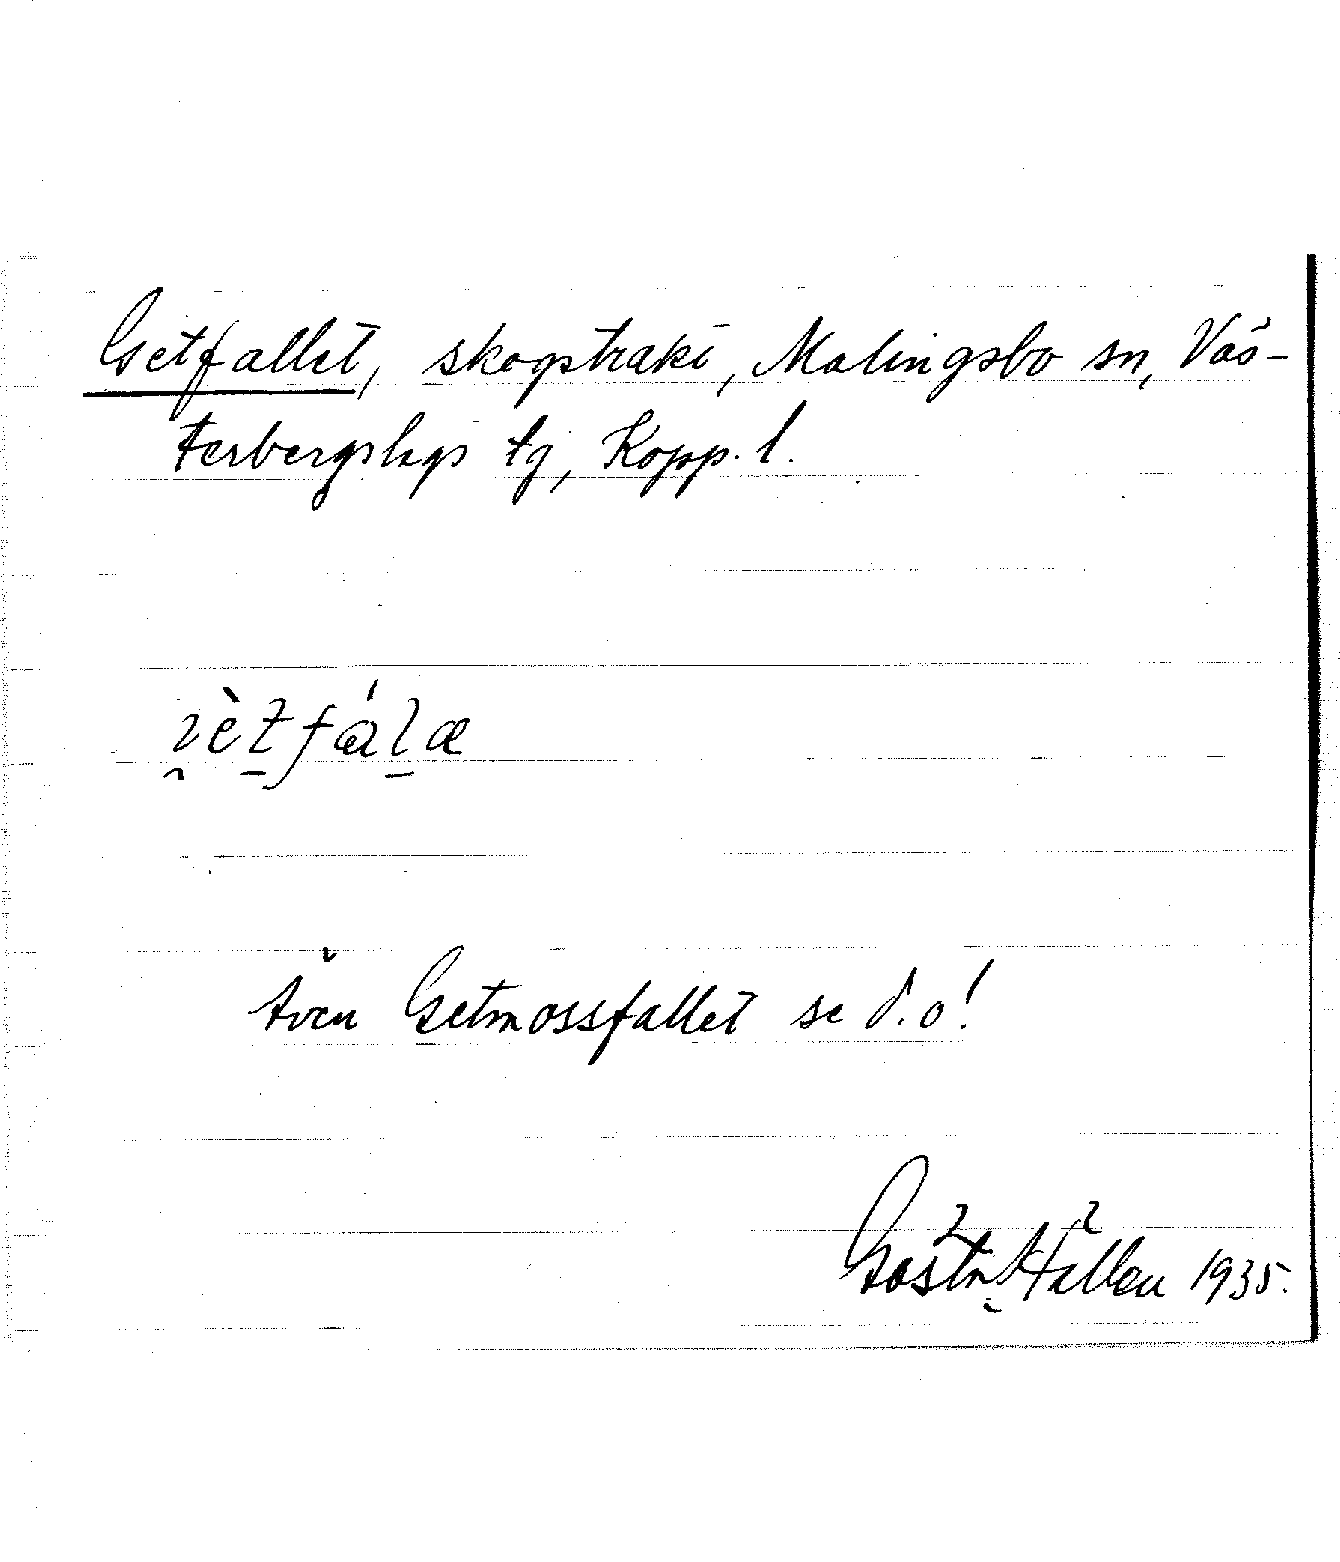 Getfallet, skogstrakt, Malingsbo sn, Väs-
terbergslags tg, Kopp. l.
Även Getmossfallet se d.o!
Gösta Hallen 1935.